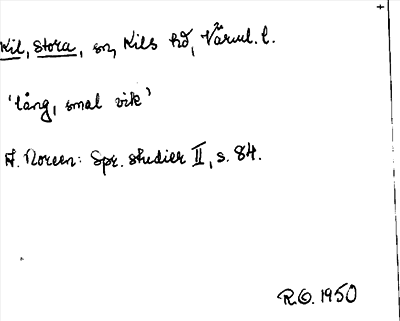 Kil, Stora, sn, Kils hd, Värml. l.
'lång, smal vik'
A. Noreen: Spr. studier II, s. 84.
R.O. 1950